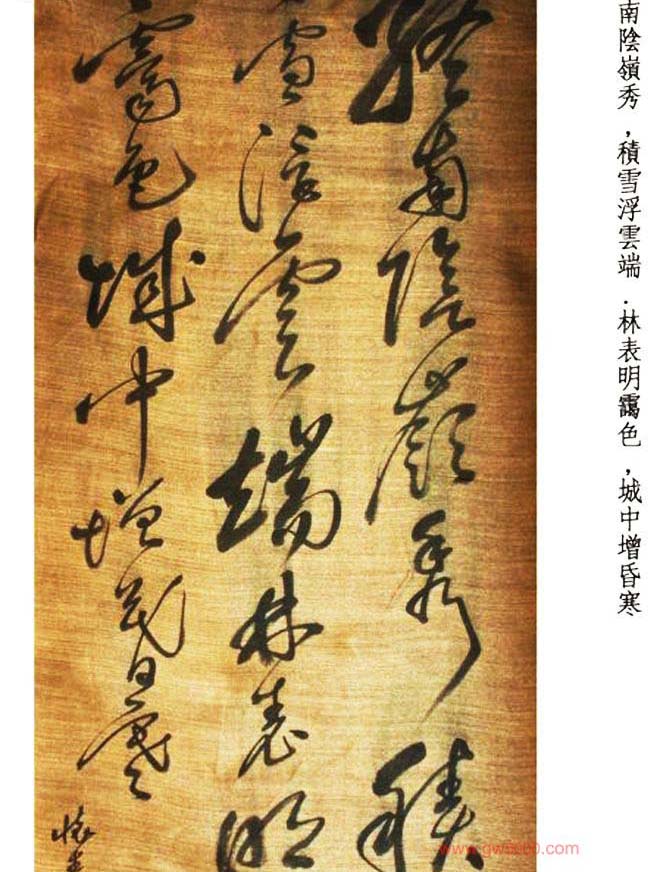 南陰嶺秀，積雪浮雲端．林表明靄色，城中增昏寒
終南陰嶺秀積
雪浮雲端林表明
霽色城中增暮寒
懷素